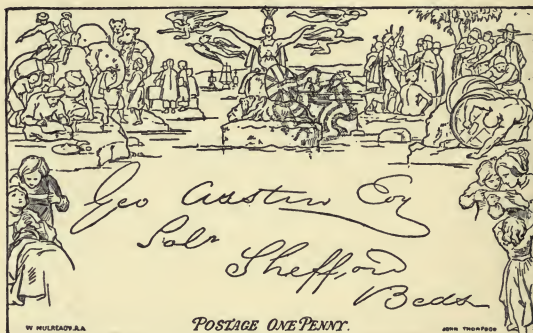 Geo Austin Esq
Solr
Shefford
Beds
W MULREADY.R.A.
POSTAGE ONE PENNY.
JOHN THOMPSON